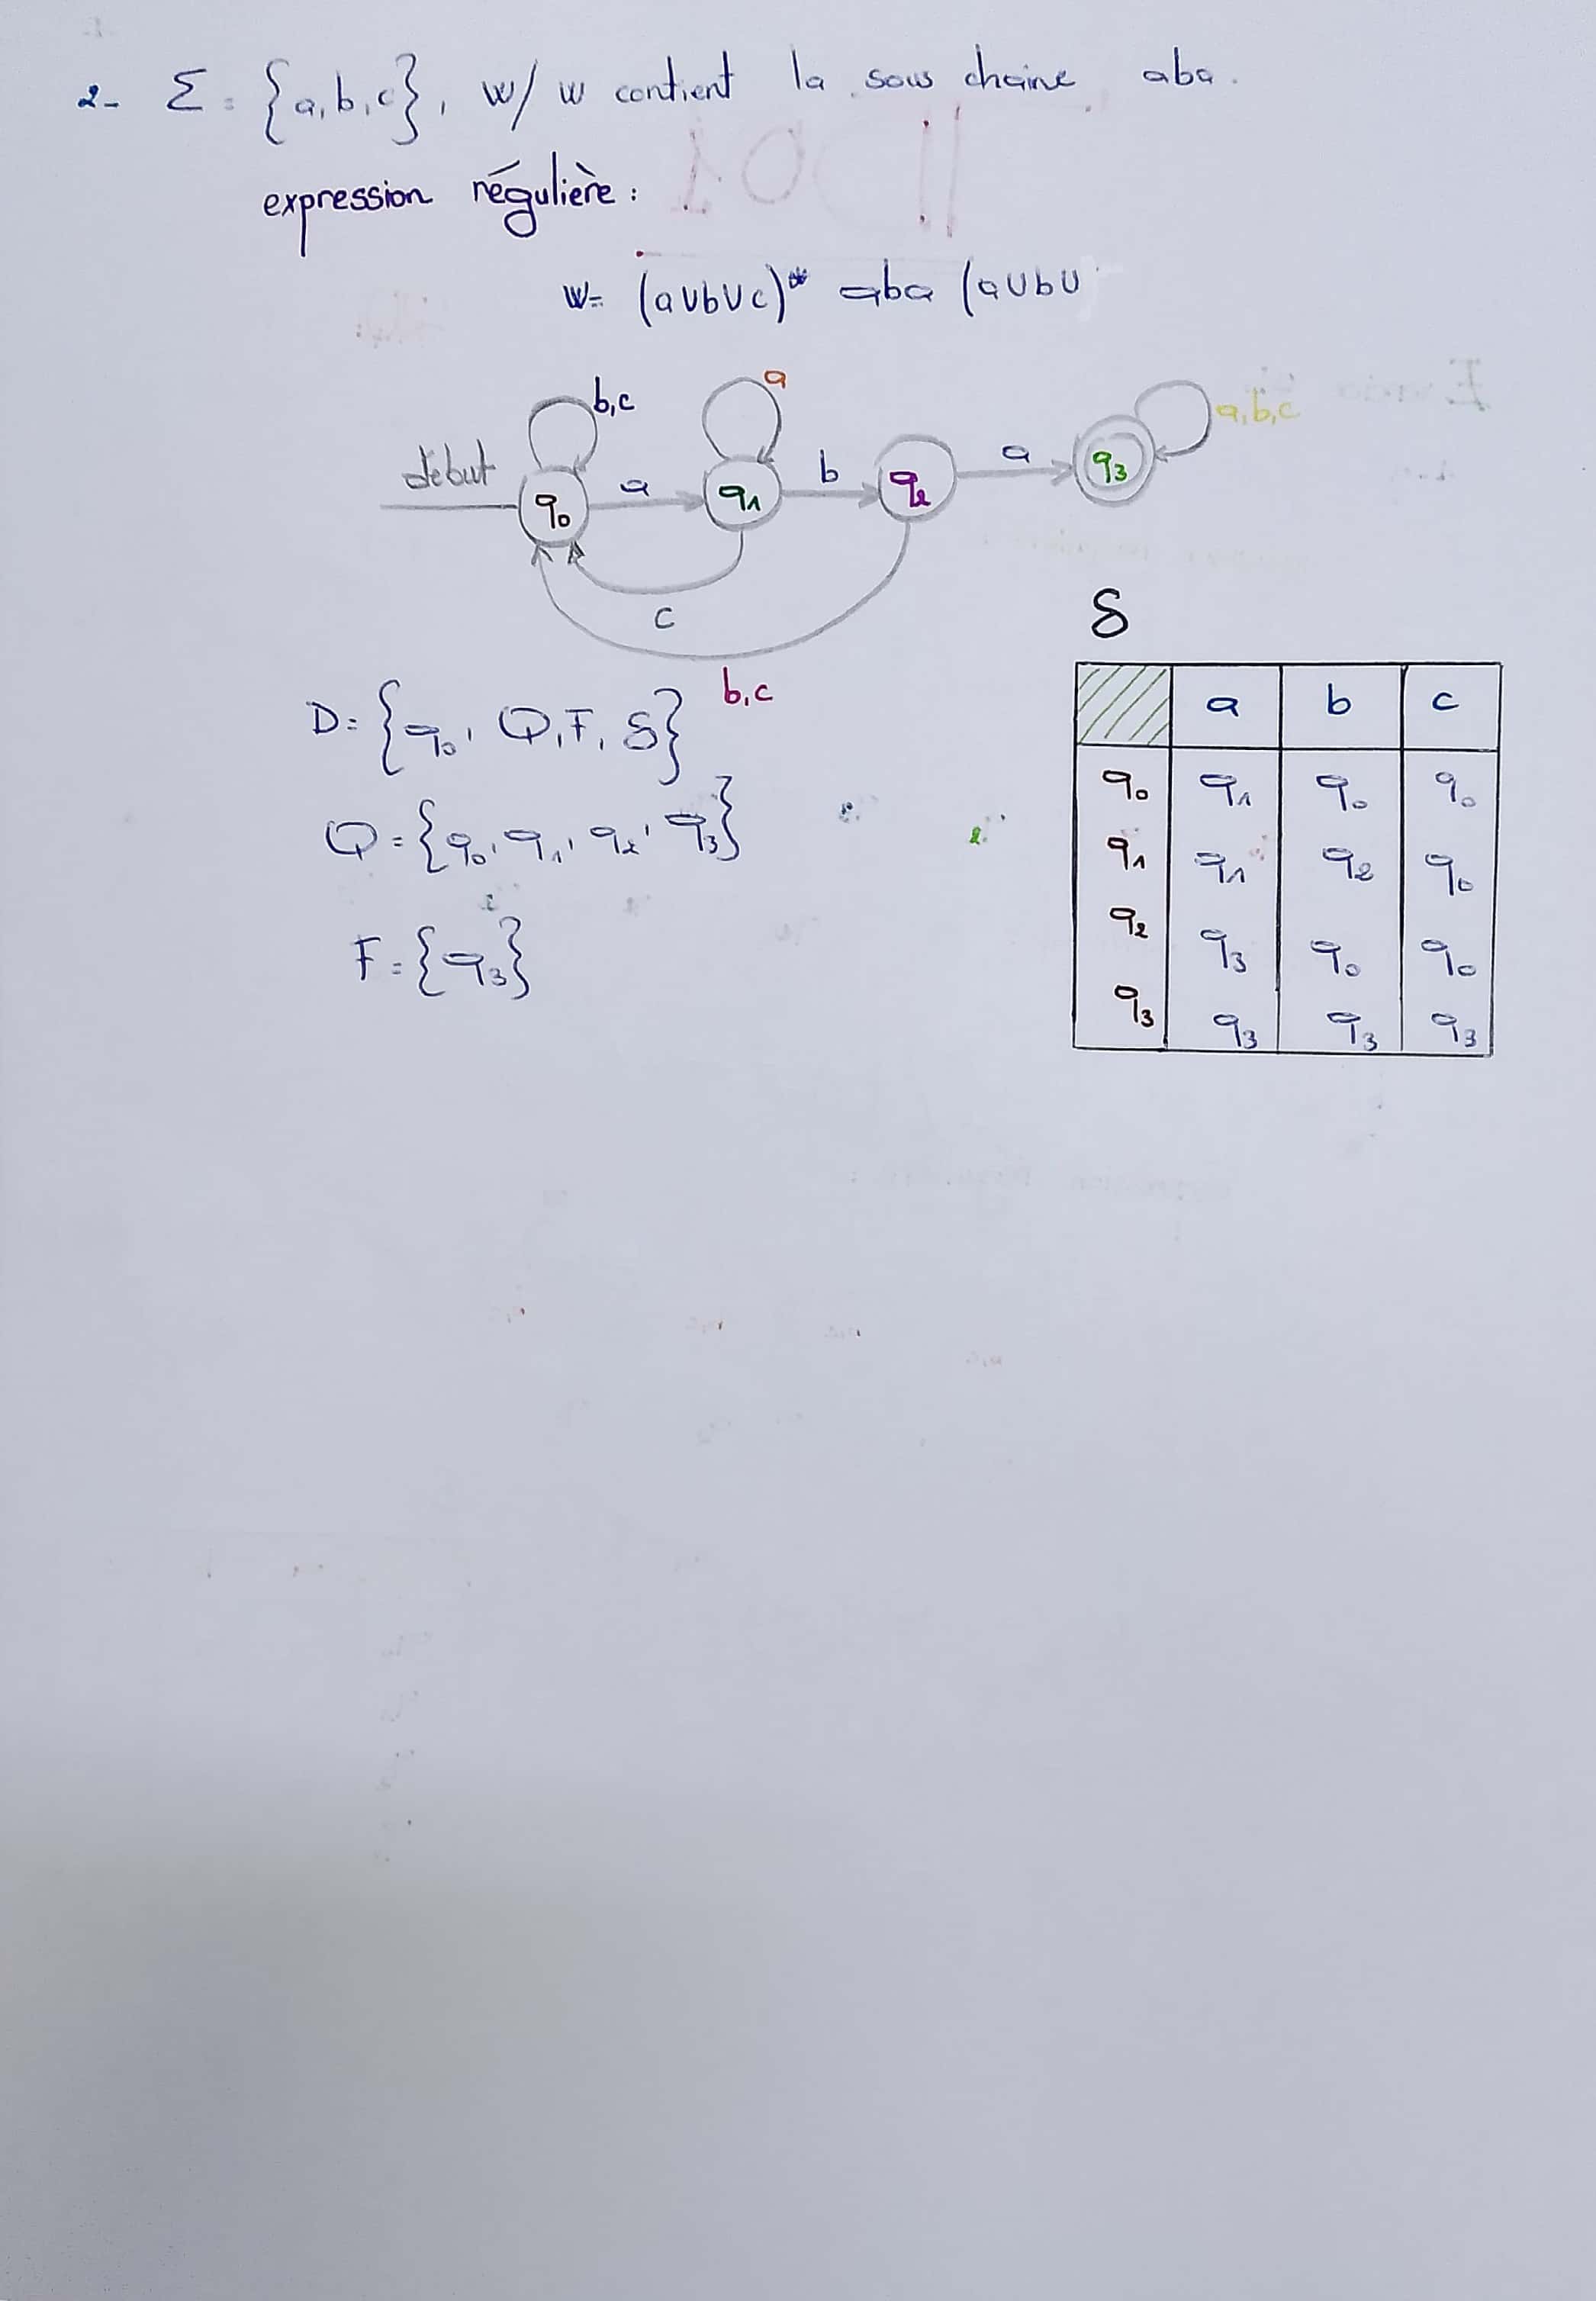 2- Σ = {a, b, c}, w/ w contient la sous chaine aba.
expression régulière :
w = (a∪b∪c)* aba (a∪b∪
b,c a a,b,c
début q0 a q1 b q2 a q3
c
b,c
δ
D = {q0, Q, F, δ}
Q = {q0, q1, q2, q3}
F = {q3}
a b c
q0 q1 q0 q0
q1 q1 q2 q0
q2 q3 q0 q0
q3 q3 q3 q3